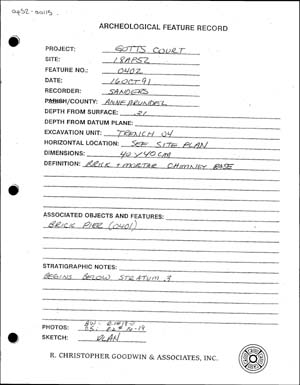 ARCHEOLOGICAL FEATURE RECORD
PROJECT: GOTTS COURT
SITE: 18AP52
FEATURE NO.: 0402
DATE: 16 OCT 91
RECORDER: SANDERS
PARISH/COUNTY: ANNE ARUNDEL
DEPTH FROM SURFACE: .21
DEPTH FROM DATUM PLANE:
EXCAVATION UNIT: TRENCH 04
HORIZONTAL LOCATION: SEE SITE PLAN
DIMENSIONS: 40 X 40 CM
DEFINITION: BRICK + MORTAR CHIMNEY BASE
ASSOCIATED OBJECTS AND FEATURES:
BRICK PIER (0401)
STRATIGRAPHIC NOTES:
BEGINS BELOW STRATUM 3
PHOTOS:
SKETCH: PLAN
R. CHRISTOPHER GOODWIN & ASSOCIATES, INC.